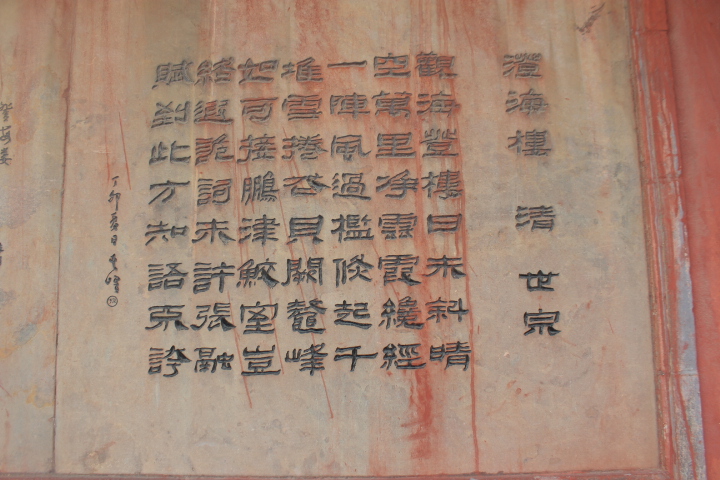 澄海樓 清 世宗
觀海登樓日未斜晴
空萬里净雲霞纔經
一陣風過檻倏起千
堆雪捲花貝闕鼇峰
如可接鵬津鮫室豈
終遐詭詞未許張融
賦到此方知語不誇
丁卯夏日